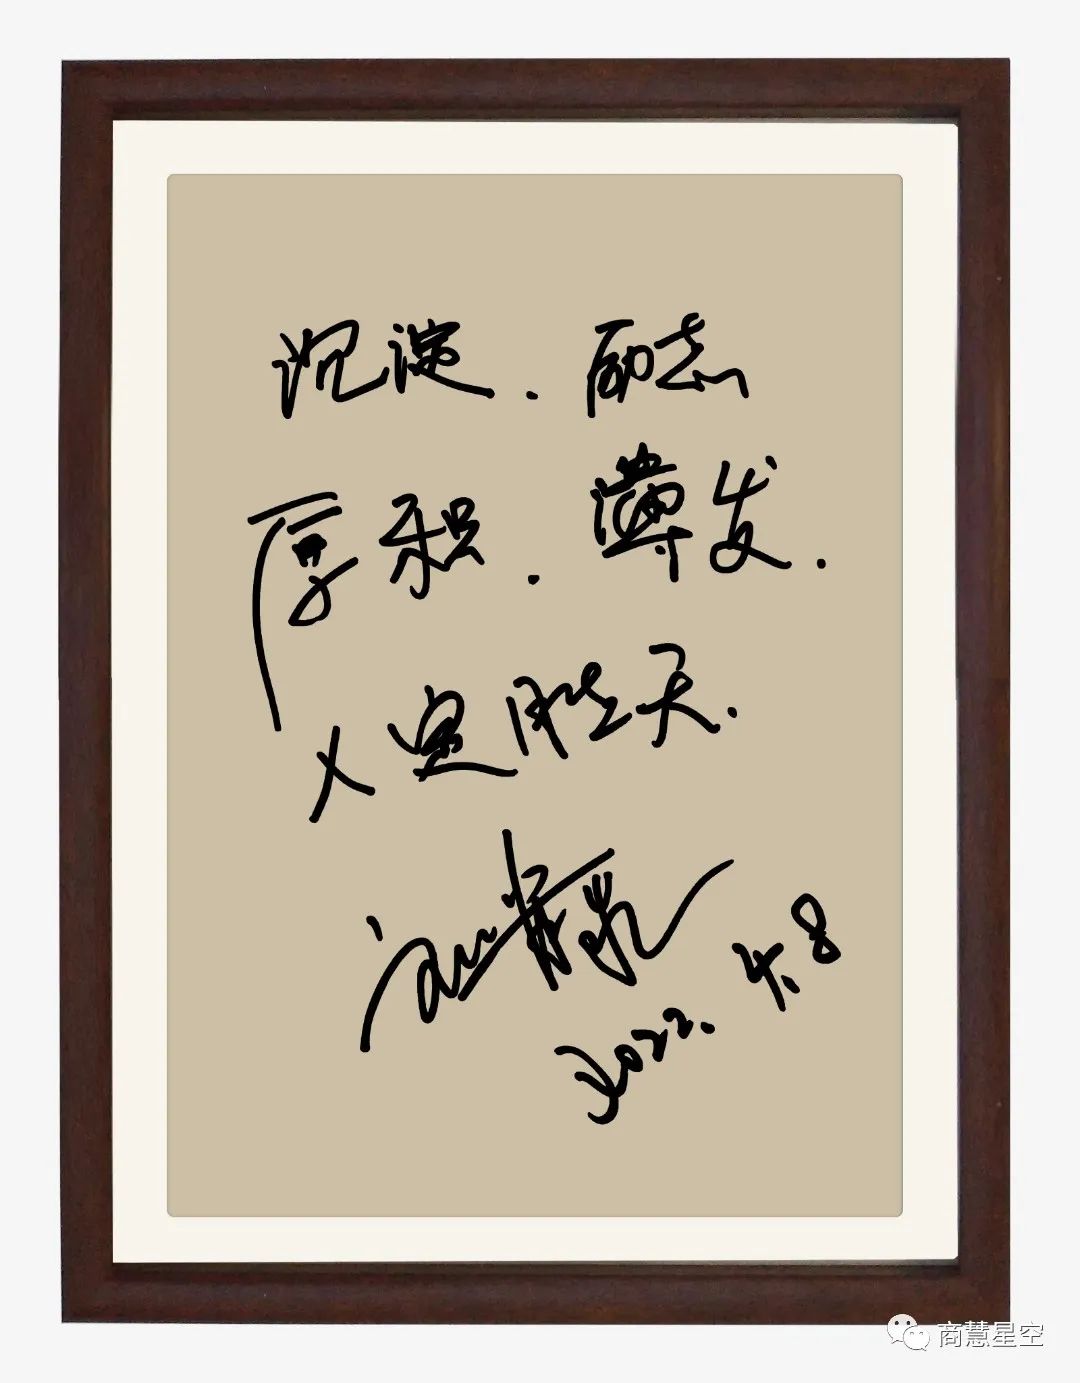 沉淀.励志
厚积.薄发.
人定胜天.
2022.4.8
商慧星空